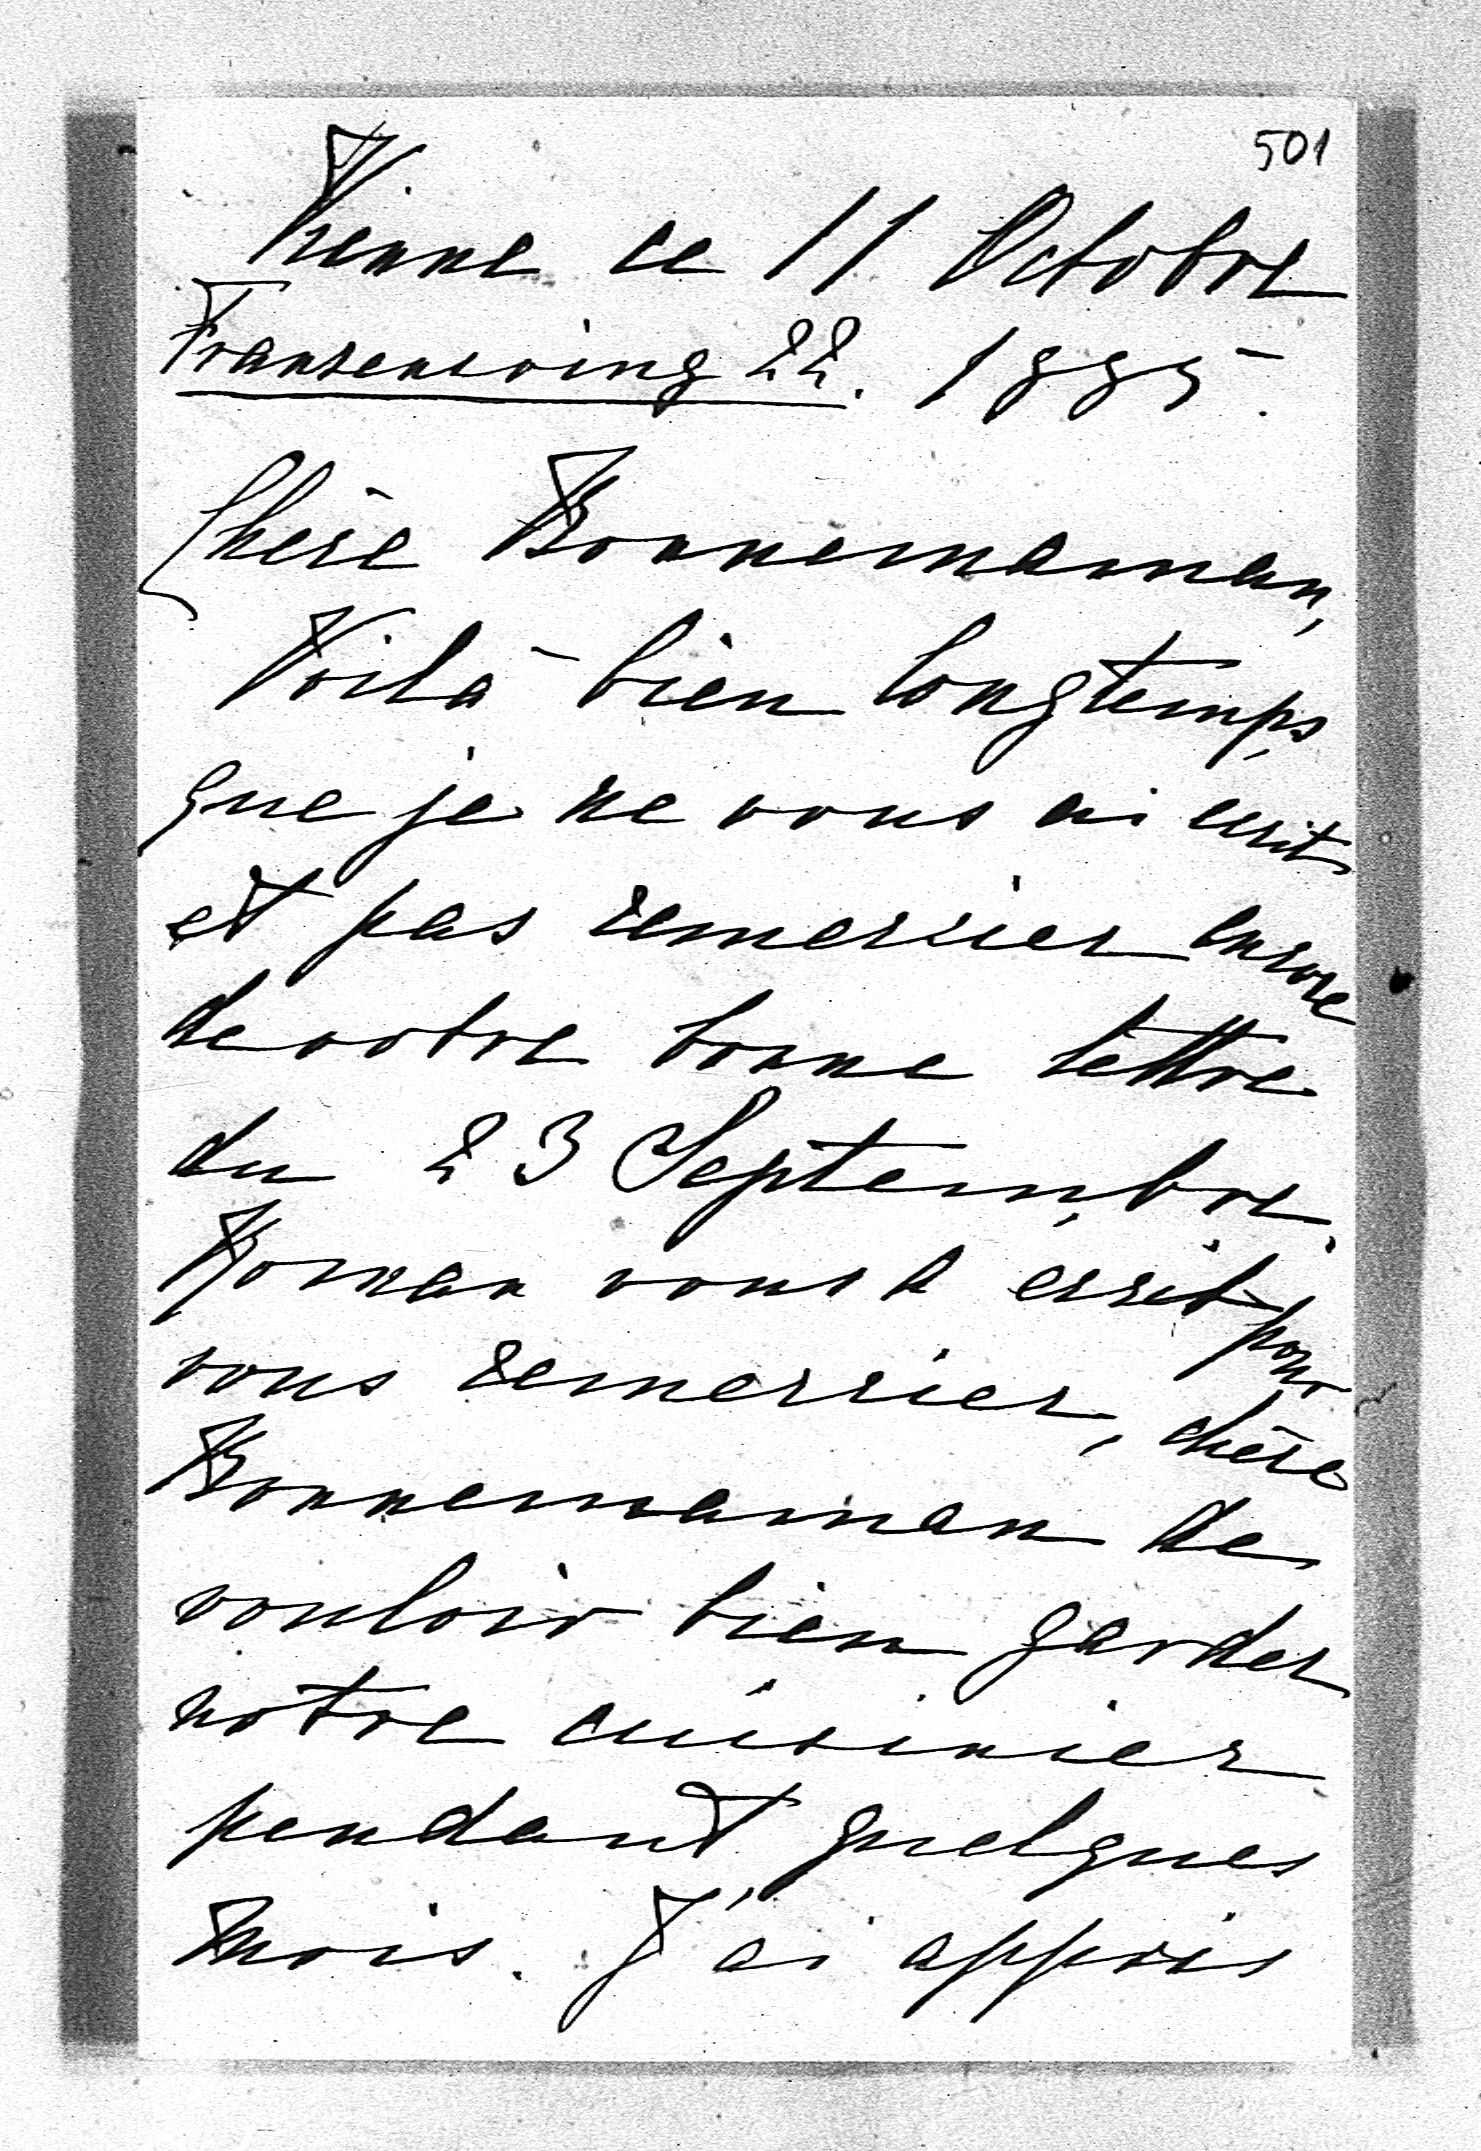 501
Vienne ce 11 Octobre
Franzensring 22. 1885.
Chère Bonnemaman,
Voilà bien longtemps
que je ne vous ai ecrit
et pas remercier encore
de votre bonne lettre
du 23 Septembre.
Roman vous a ecrit pour
vous remercier, chère
Bonnemaman de
vouloir bien garder
notre cuisinier
pendant quelques
mois. J'ai appris